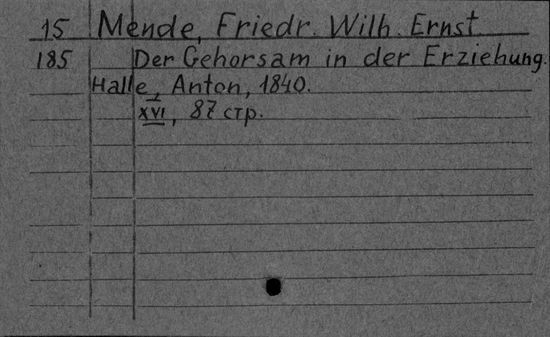 15 Mende, Friedr. Wilh. Ernst
185 Der Gehorsam in der Erziehung.
Halle, Anton, 1840.
XVI, 87 стр.